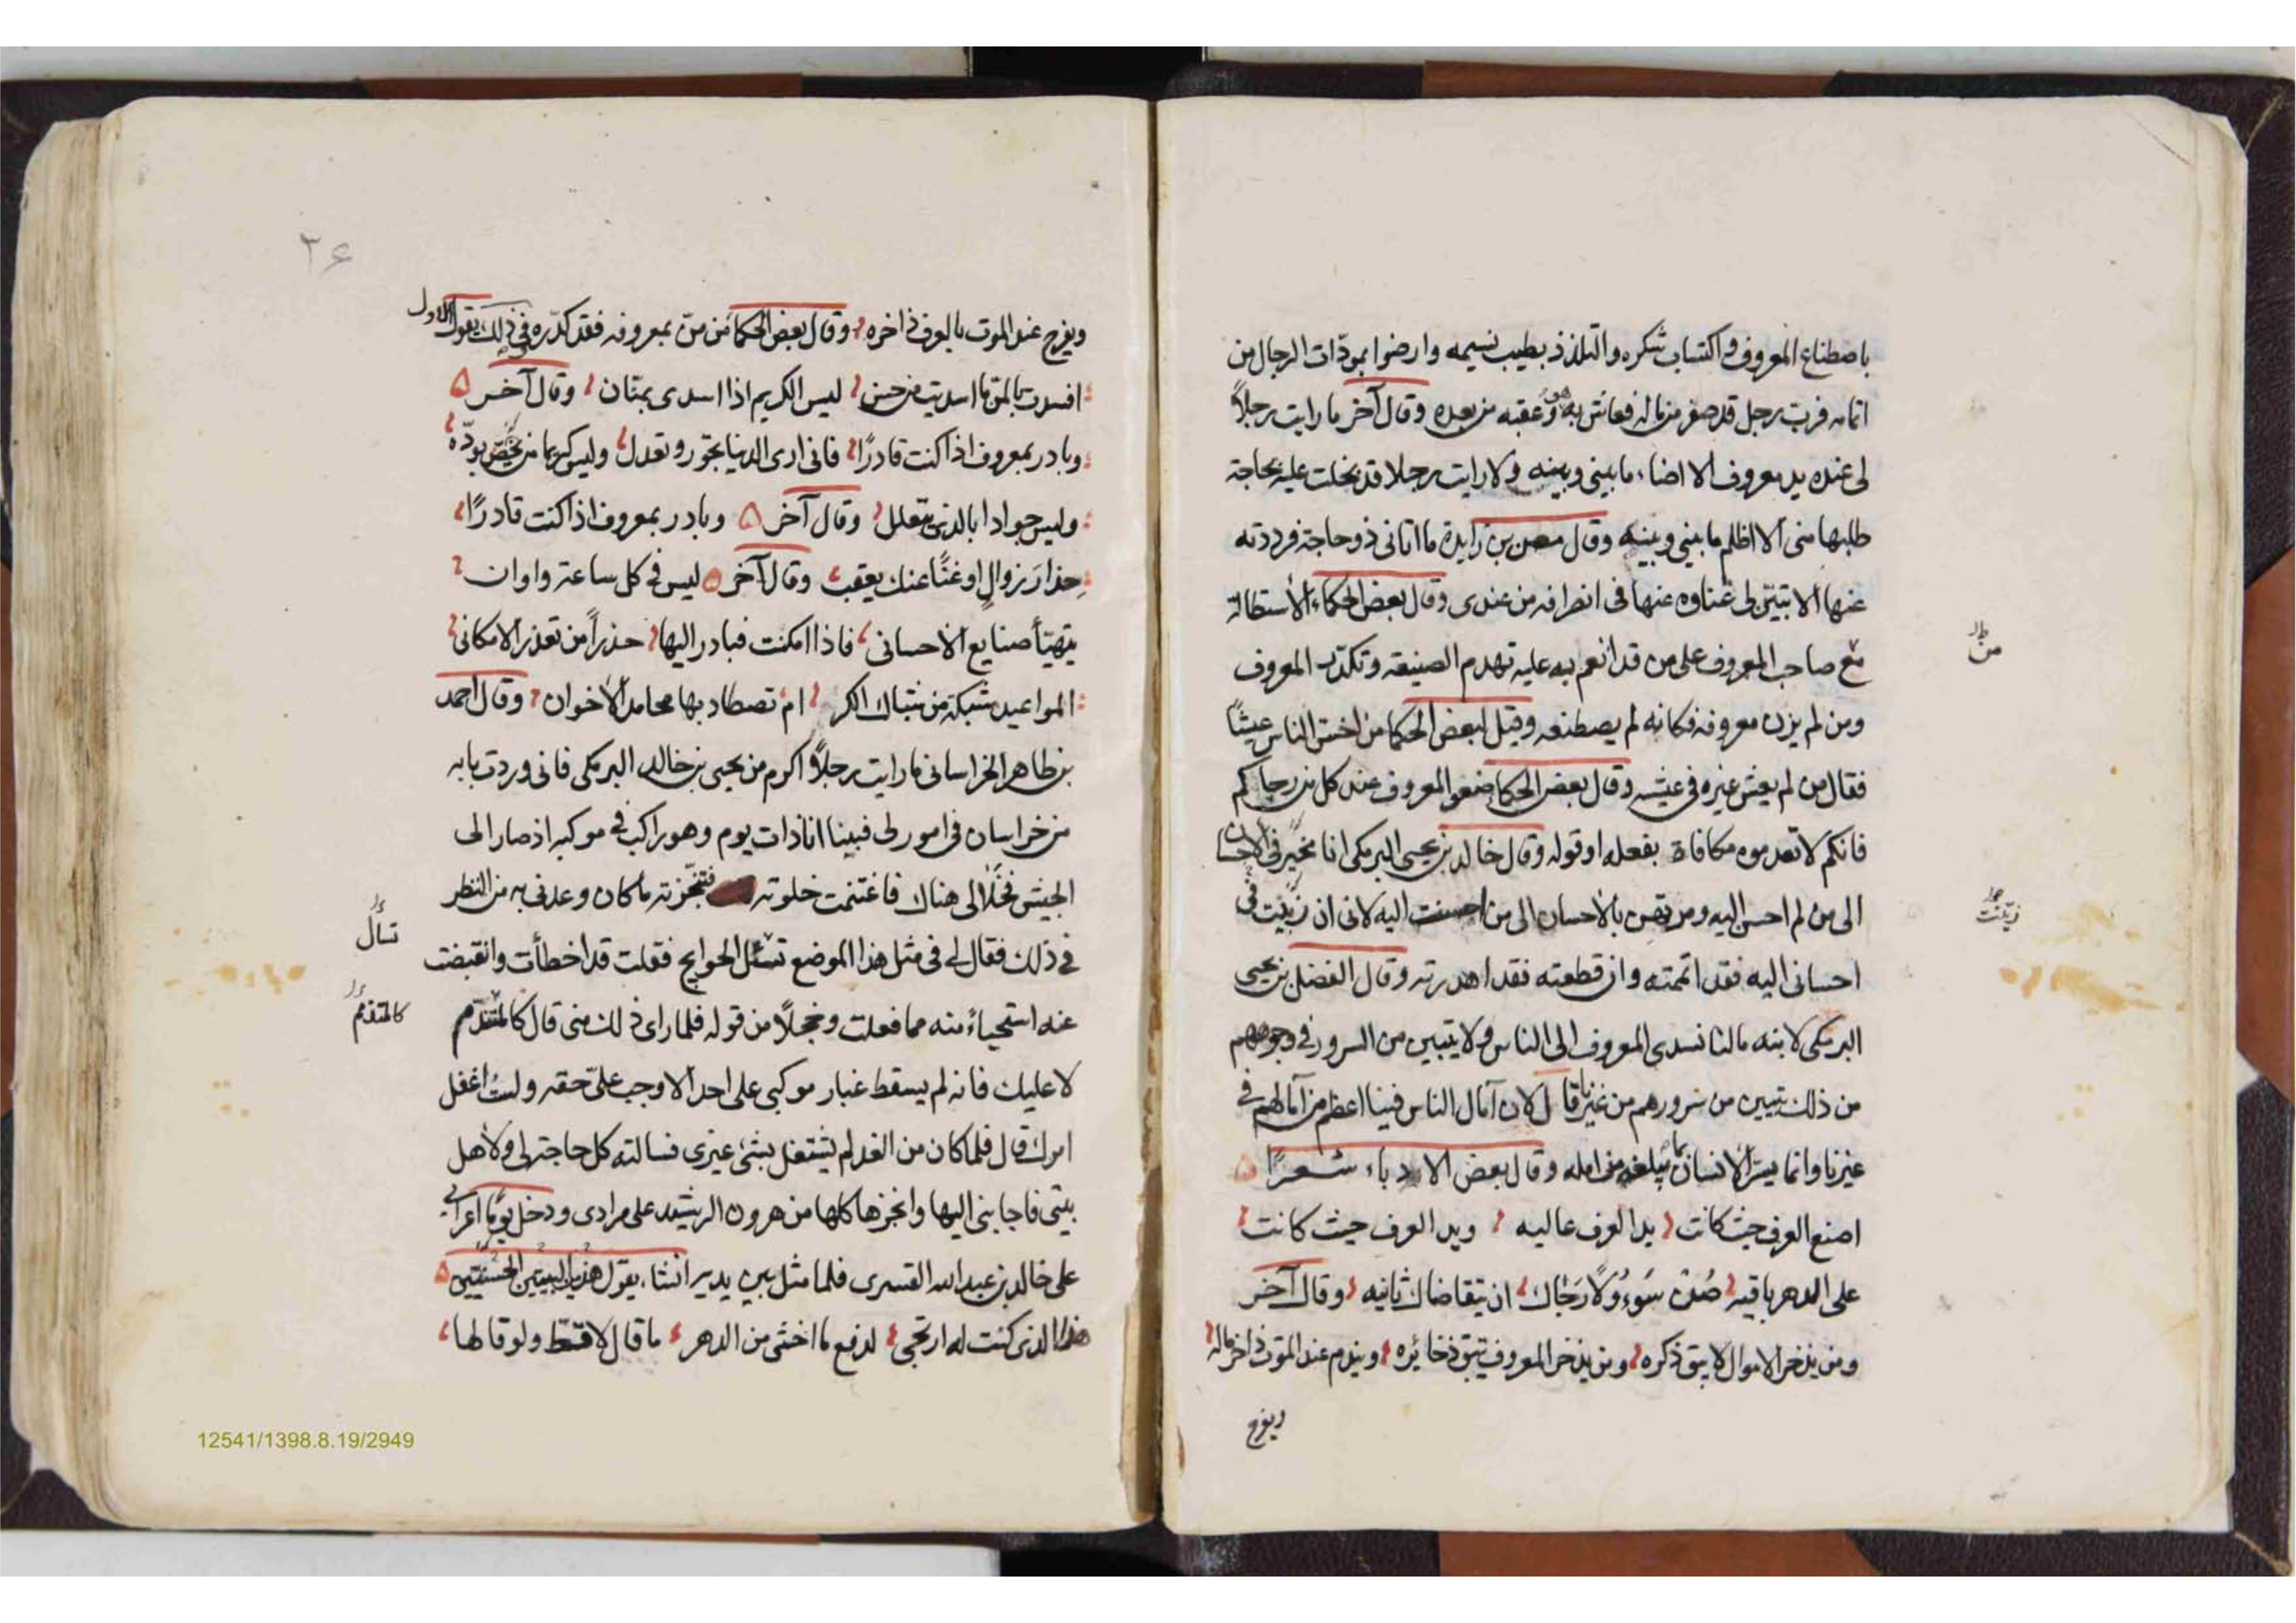 باصطناع المعروف واكتساب شكره والتلذذ بطيب نسيمه وارضوا بمودّات الرجال من
اثمانه فرب رجل قد صفر من ماله فعاش به هو وعقبه من بعده وقال آخر ما رايت رجلاً
لى عنده يد معروف الا اضاء ما بينى وبينه ولا رايت رجلا قد بخلت عليه بحاجة
طلبها منى الا اظلم ما بيني وبينه وقال معن بن زايدة ما اتانى ذو حاجة فرددته
عنها الا تبيّن لى غناوه عنها فى انصرافه من عندى وقال بعض الحكماء الاستطالة
مع صاحب المعروف على من قد انعم به عليه تهدم الصنيعه وتكدّر المعروف
من
ومن لم يزن معروفه فكانه لم يصطنعه وقيل لبعض الحكما من اخس الناس عيشًا
فقال من لم يعش غيره فى عيشه وقال بعض الحكما ضعو المعروف عند كل من رجاكم
فانكم لا تعدموه مكافاة بفعله او قوله وقال خالد بن يحيى البرمكى انا مخيّر فى الاحسان
الى من لم احسن اليه ومرتهن بالاحسان الى من احسنت اليه لانى ان ربّيت فى
احسانى اليه فقد اتممته وان قطعته فقد اهدرته وقال الفضل بن يحيى
البرمكى لابنه مالنا نسدى المعروف الى الناس ولا يتبين من السرور فى وجوههم
من ذلك يتبين من سرورهم من غيرنا قال لان آمال الناس فينا اعظم من آمالهم فى
غيرنا وانما يسرّ الانسان بما يبلغه من امله وقال بعض الادباء شعرًا
اصنع العرف حيث كانت يد العرف عاليه ويد العرف حيث كانت
على الدهر باقيه صُن سَوءُولًا رَجاك ان يتقاضاك ثانيه وقال آخر
ومن يذخر الاموال لا يبق ذكره ومن يذخر المعروف تبق ذخائره ويندم عند الموت ذاخر ماله
ويفرح
٢۶
ويفرح عند الموت بالعرف ذاخره وقال بعض الحكما من منّ بمعروفه فقد كدّره فى ذلك يقول الاول
افسدت بالمنّ ما اسديت من حسن ليس الكريم اذا اسدى بمنّان وقال آخر
وبادر بمعروف اذا كنت قادرًا فانى ارى الدنيا تجور وتعدل وليس كريما من يخصّ بودّه
وليس جوادا بالذى يتعلل وقال آخر وبادر بمعروف اذا كنت قادرًا
حِذارَ زوالٍ او غنًا عنك يعقب وقال آخر ليس فى كل ساعة واوان
يتهيّأ صنايع الاحسانى فاذا امكنت فبادر اليها حذراً من تعذر الامكانى
المواعيد شبكة من شباك الكرام تصطاد بها محامد الاخوان وقال احمد
بن طاهر الخراسانى ما رايت رجلاً اكرم من يحيى بن خالد البرمكى فانى وردت بابه
من خراسان فى امور لى فبينا انا ذات يوم وهو راكب فى موكبه اذ صار الى
الجيش فخلا الى هناك فاغتنمت خلوته فتنجّزته ما كان وعدنى به من النظر
فى ذلك فقال لى فى مثل هذا الموضع تسئل الحوايج فقلت قد اخطأت وانقبضت
تسأل
عنه استحياءً منه مما فعلت وخجلًا من قوله فلما راى ذلك منى قال كالمتندّم
كالمتذمم
لا عليك فانه لم يسقط غبار موكبى على احد الا وجب علىّ حقه ولستُ اغفل
امرك قال فلما كان من الغد لم يشتغل بشئ غيرى فسالته كل حاجة لى ولاهل
بيتى فاجابنى اليها وانجزها كلها من هرون الرشيد على مرادى ودخل يومًا اعرابى
على خالد بن عبد الله القسرى فلما مثل بين يديه انشاء يقول هذين البيتين الحسنيّتين
هذا الذى كنت له ارتجى لدفع ما اخشى من الدهر ما قال لا قطّ ولو قالها
12541/1398.8.19/2949